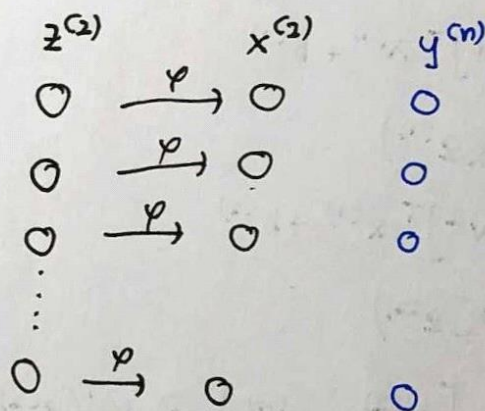 z⁽²⁾ x⁽²⁾ y⁽ⁿ⁾
φ
φ
φ
φ